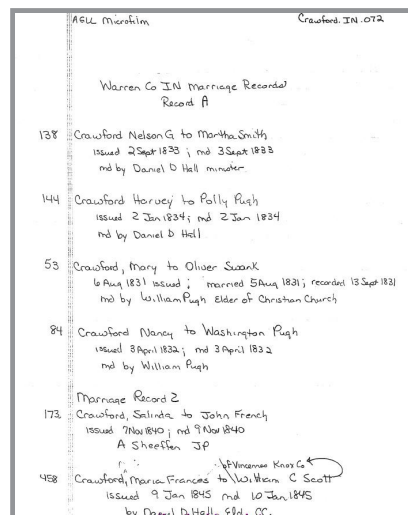 AGLL Microfilm
Crawford. IN .072
Warren Co IN Marriage Records
Record A
138 Crawford Nelson G to Martha Smith
issued 2 Sept 1833 ; md 3 Sept 1833
md by Daniel D Hall minister
144 Crawford Harvey to Polly Pugh
issued 2 Jan 1834; md 2 Jan 1834
md by Daniel D Hall
53 Crawford, Mary to Oliver Swank
6 Aug 1831 issued ; married 5 Aug 1831; recorded 13 Sept 1831
md by William Pugh Elder of Christian Church
84 Crawford Nancy to Washington Pugh
issued 3 April 1832; md 3 April 1832
md by William Pugh
Marriage Record 2
173. Crawford, Salinda to John French
issued 7 Nov 1840; md 9 Nov 1840
A Sheeffen JP
of Vincennes Knox Co
458 Crawford, Maria Frances to William C Scott
issued 9 Jan 1845 md 10 Jan 1845
by D Hall, Eld. CC.